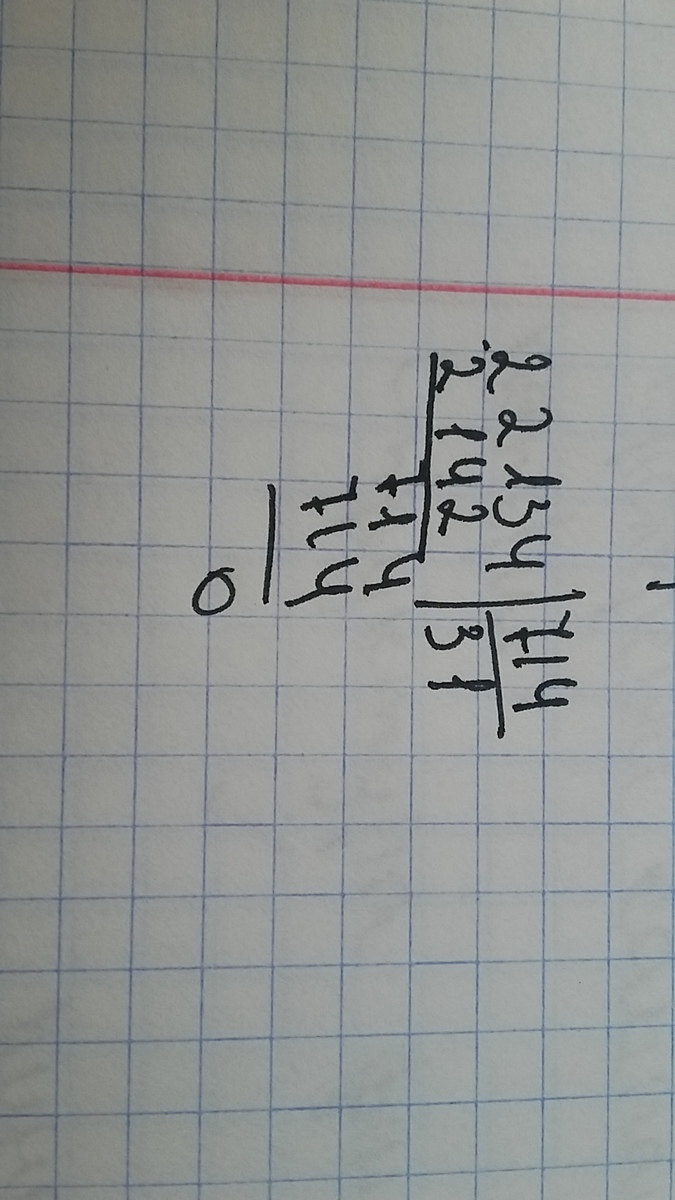 22134 714
2142 31
714
714
0